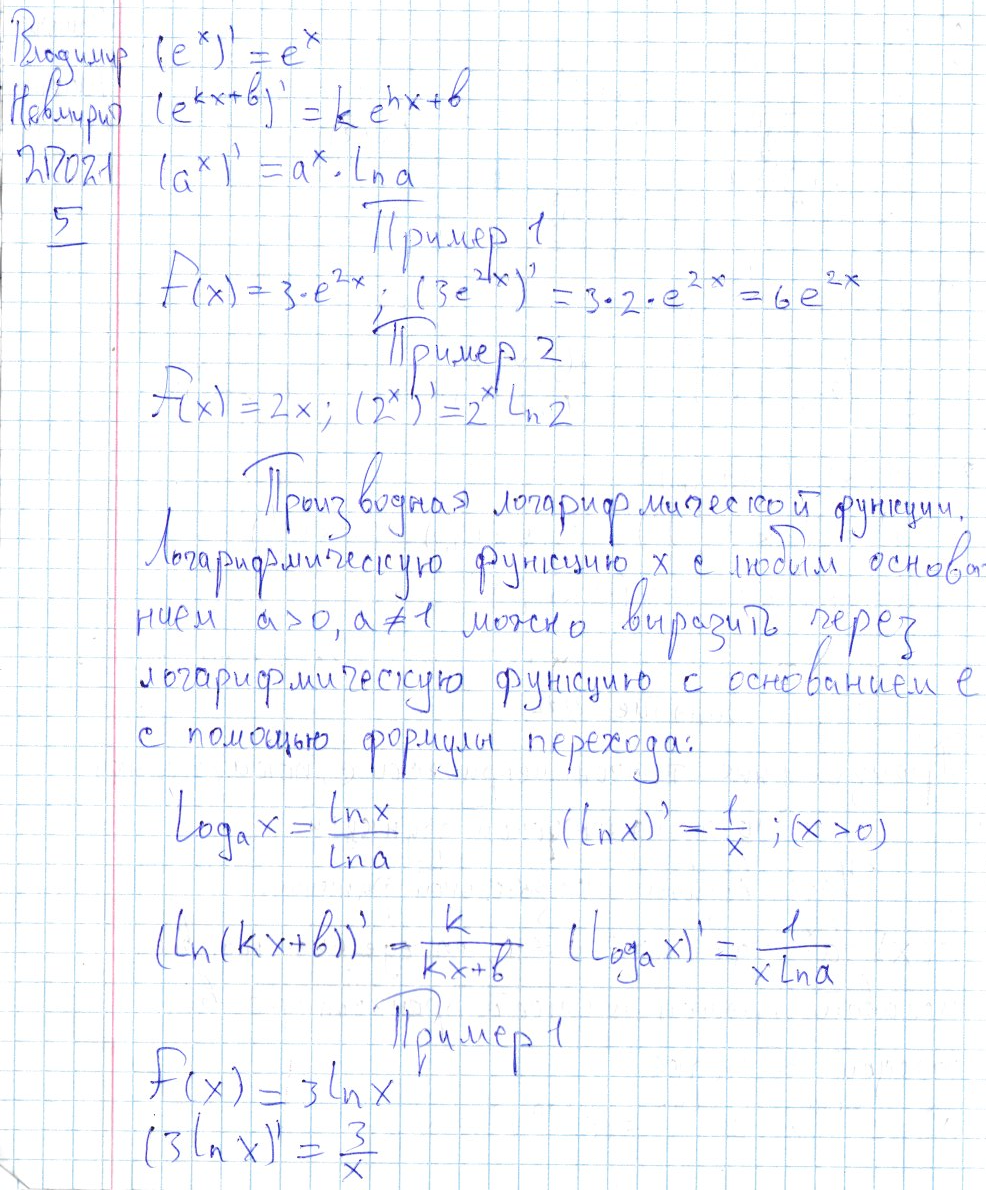 Владимир (eˣ)' = eˣ
(e^(kx+b))' = k e^(kx+b)
2П021 (aˣ)' = aˣ · Ln a
5
Пример 1
F(x) = 3·e^(2x); (3e^(2x))' = 3·2·e^(2x) = 6e^(2x)
Пример 2
F(x) = 2x; (2ˣ)' = 2ˣ Ln 2
Производная логарифмической функции.
Логарифмическую функцию x с любым основа-
нием a>0, a≠1 можно выразить через
логарифмическую функцию с основанием e
с помощью формулы перехода:
Logₐ x = Ln x / Ln a (Ln x)' = 1/x ; (x > 0)
(Ln(kx+b))' = k/(kx+b) (Logₐ x)' = 1/(x Ln a)
Пример 1
F(x) = 3 Ln x
(3 Ln x)' = 3/x